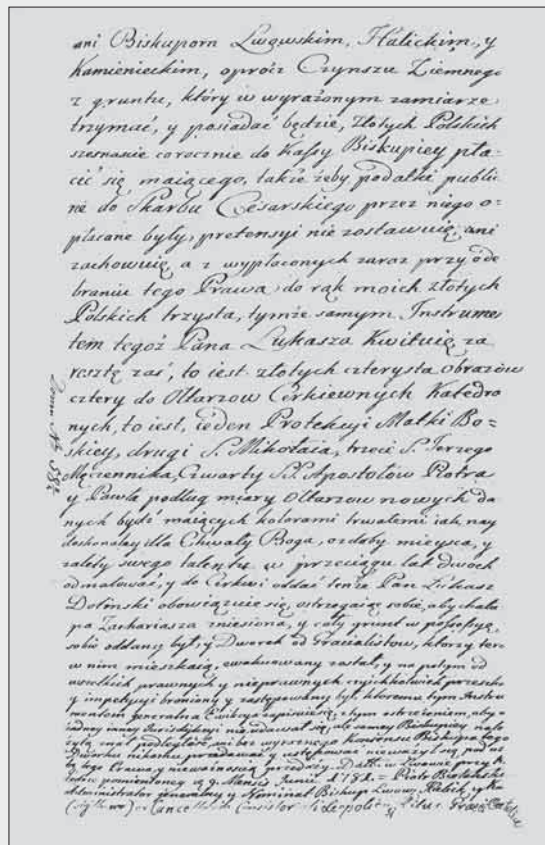 ani Biskupom Lwowskim, Halickim, y
Kamienieckim, oprócz Czynszu Ziemnego
z gruntu, który w wyrażonym zamiarze
trzymać, y posiadać będzie, Złotych Polskich
szesnaście corocznie do Kassy Biskupiey pła-
cić się maiącego, także żeby podatki publi
ne do Skarbu Cesarskiego przez niego o=
płacane były, pretensyi nie zostawuię, ani
zachowuię, a z wypłaconych zaraz przy ode
braniu tego Prawa do rąk moich złotych
Polskich trzysta, tymże samym Instrume
tem tegoż Pana Łukasza Kwituię, za
resztę zaś, to iest złotych czterysta obrazów
cztery do Ołtarzow Cerkiewnych Katedro
nych, to iest, ieden Protekcyi Matki Bo=
skiey, drugi S. Mikołaia, trzeci S. Jerzego
Męczennika, Czwarty SS. Apostołów Piotra
y Pawła podług miary Ołtarzow nowych da
nych bydź maiących kolorami trwałemi iak nay
doskonaley dla Chwały Boga, ozdoby mieysca, y
zalety swego talentu w przeciągu lat dwoch
odmalować, y do Cerkwi oddać tenże Pan Łukasz
Doliński obowiązuie się, ostrzegaiąc sobie, aby chału
pa Zachariasza zniesiona, y cały grunt w possessyę
sobie oddany był, y Dworek od Gracialistow, ktorzy teraz
w nim mieszkaią, ewakuowany został, y na potym od
wszelkich prawnych y nieprawnych czyichkolwiek przeszko
y impetycyi broniony y zastępowany był, ktoremu tym Instru
mentem generalną Ewikcyą zapisuię się, z tym ostrzeżeniem, aby
żadney inney Jurisdykcyi nie udawał się, ale samey Biskupiey nale
żytą miał podległość, ani bez wyraźnego Konsensu Biskupa tego
Dworku nikomu przedawać y ustępować nie ważył się, pod
tą tego Prawa y nieważnością przedaży. Datt. w Lwowie przy K
Administrator generalny y Nominat Biskup Lwow. Halick. y Ka
Dom N° 582